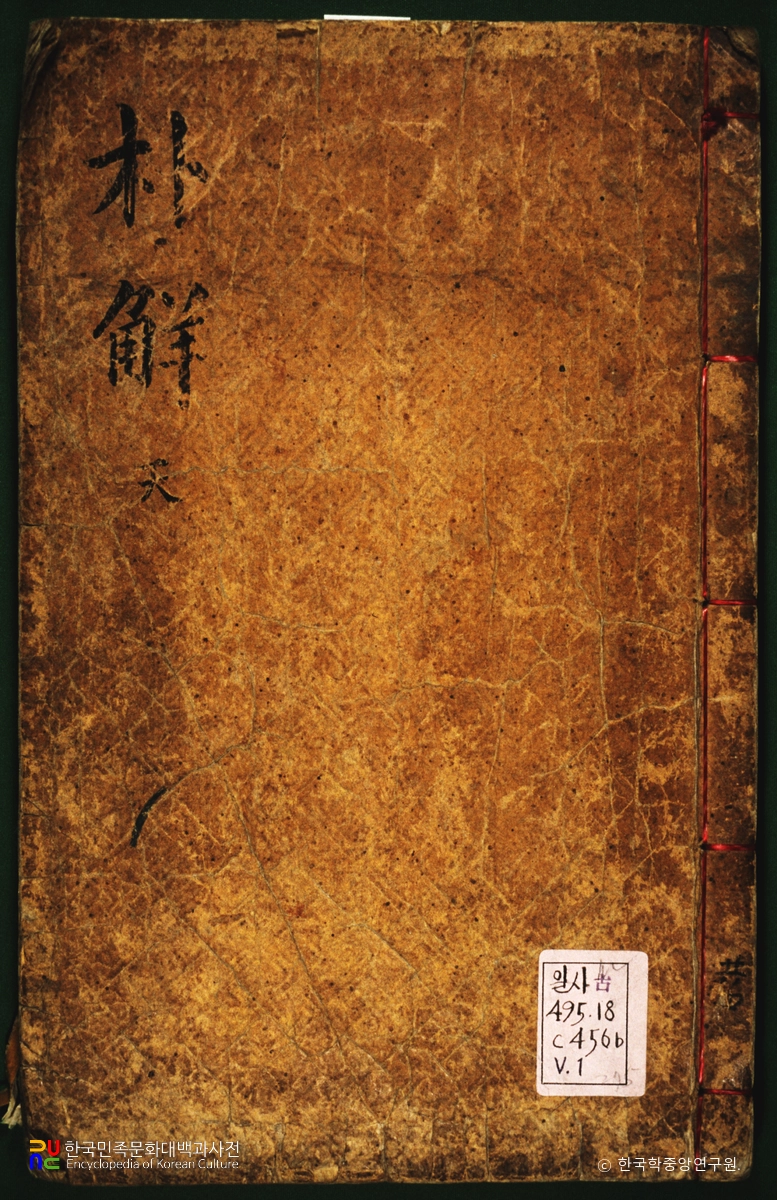 朴
觧
天
일사 古
495.18
C456b
V.1
한국민족문화대백과사전
Encyclopedia of Korean Culture
ⓒ 한국학중앙연구원